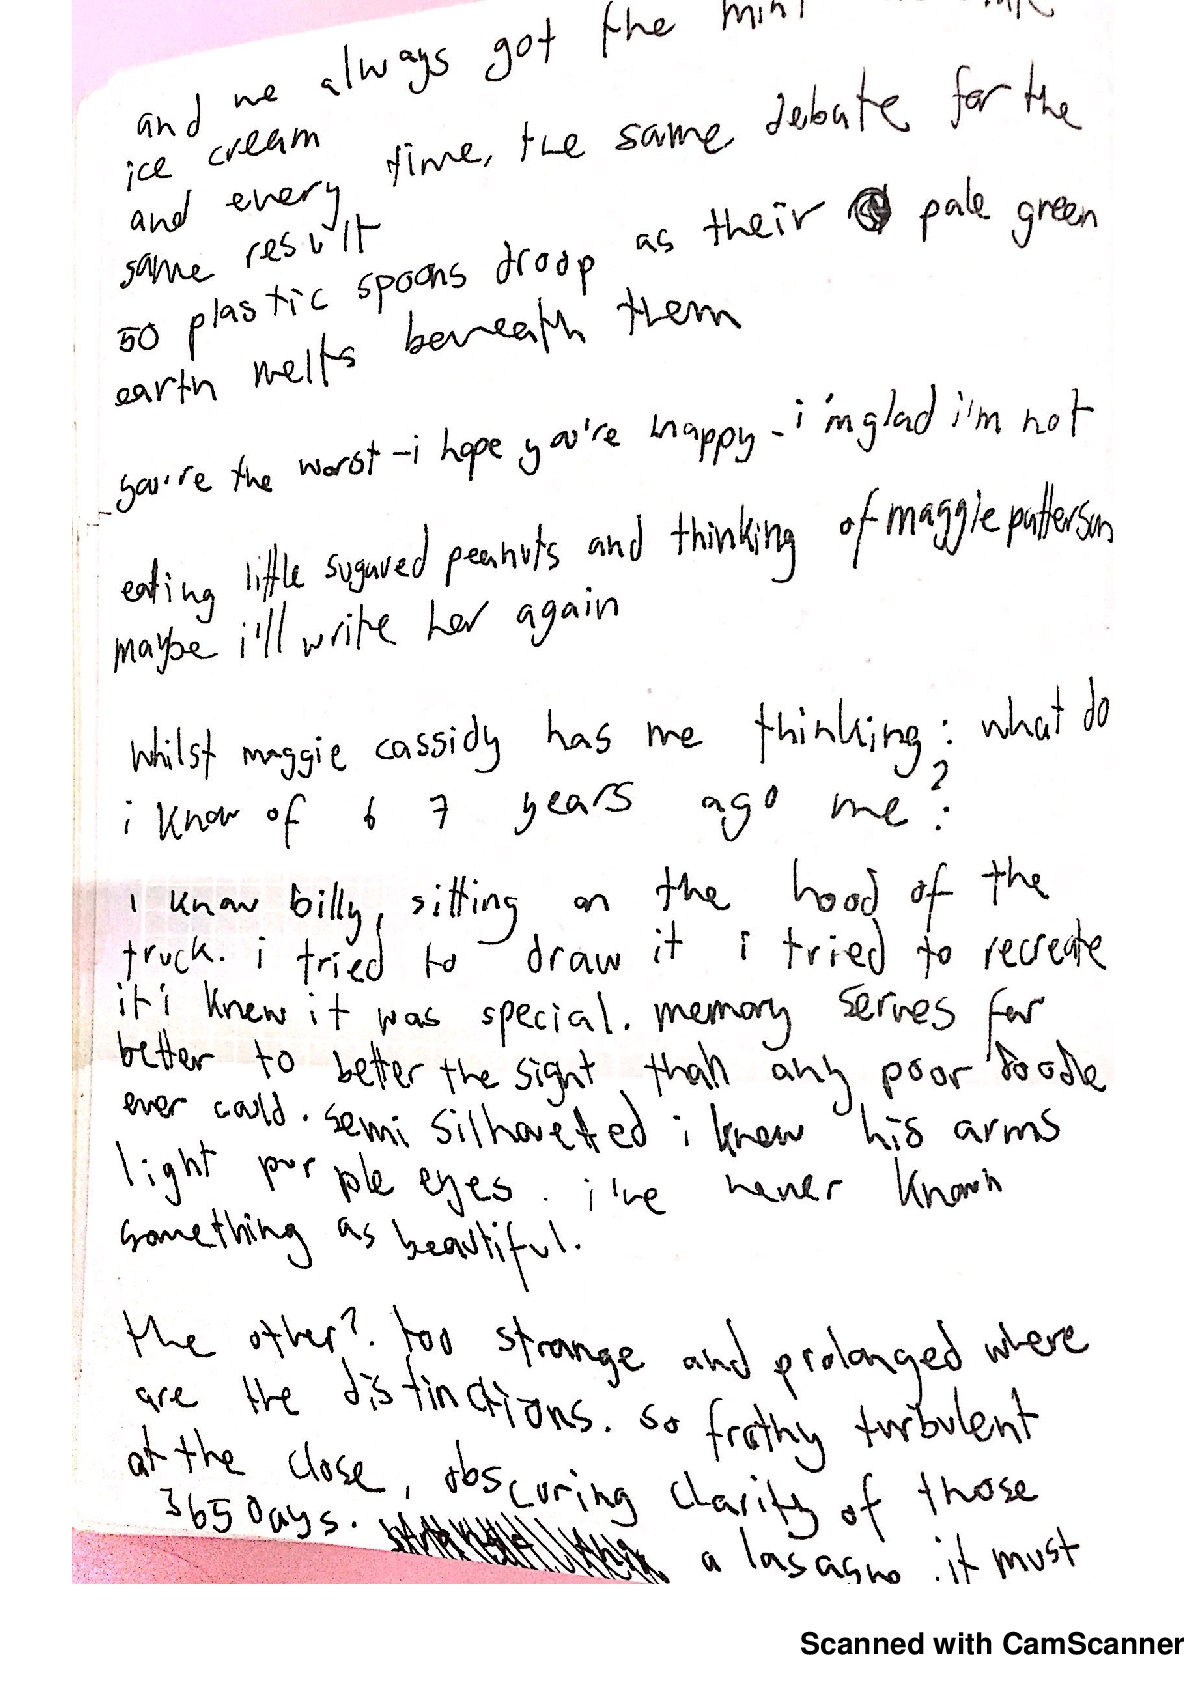 and we always got the mint
ice cream
and every time, the same debate for the
same result
50 plastic spoons droop as their pale green
earth melts beneath them
you're the worst - i hope you're happy - i'm glad i'm not
eating little sugared peanuts and thinking of maggie patterson
maybe i'll write her again
whilst maggie cassidy has me thinking: what do
i know of 6 7 years ago me?
i know billy, sitting on the hood of the
truck. i tried to draw it i tried to recreate
it i knew it was special. memory serves far
better to better the sight than any poor doodle
ever could. semi silhouetted i knew his arms
light purple eyes. i've never known
something as beautiful.
the other?. too strange and prolonged where
are the distinctions. so frothy turbulent
at the close, obscuring clarity of those
365 days. a lasagna. it must
Scanned with CamScanner